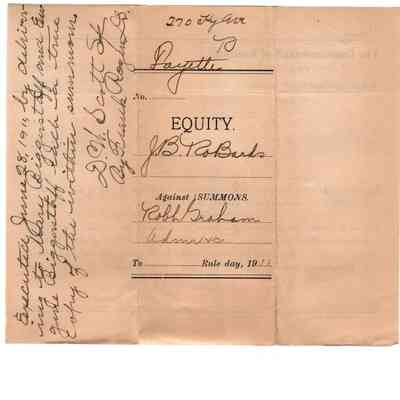 270
Fayette
No.
EQUITY.
J. B. RoBards
Against SUMMONS.
Robt Graham
Admr &c
To Rule day, 191
Executed June 28, 1911 by deliver-
ing to Mary Biggerstaff and
Biggerstaff each a true
Copy of the within summons
D. W. Scott
By